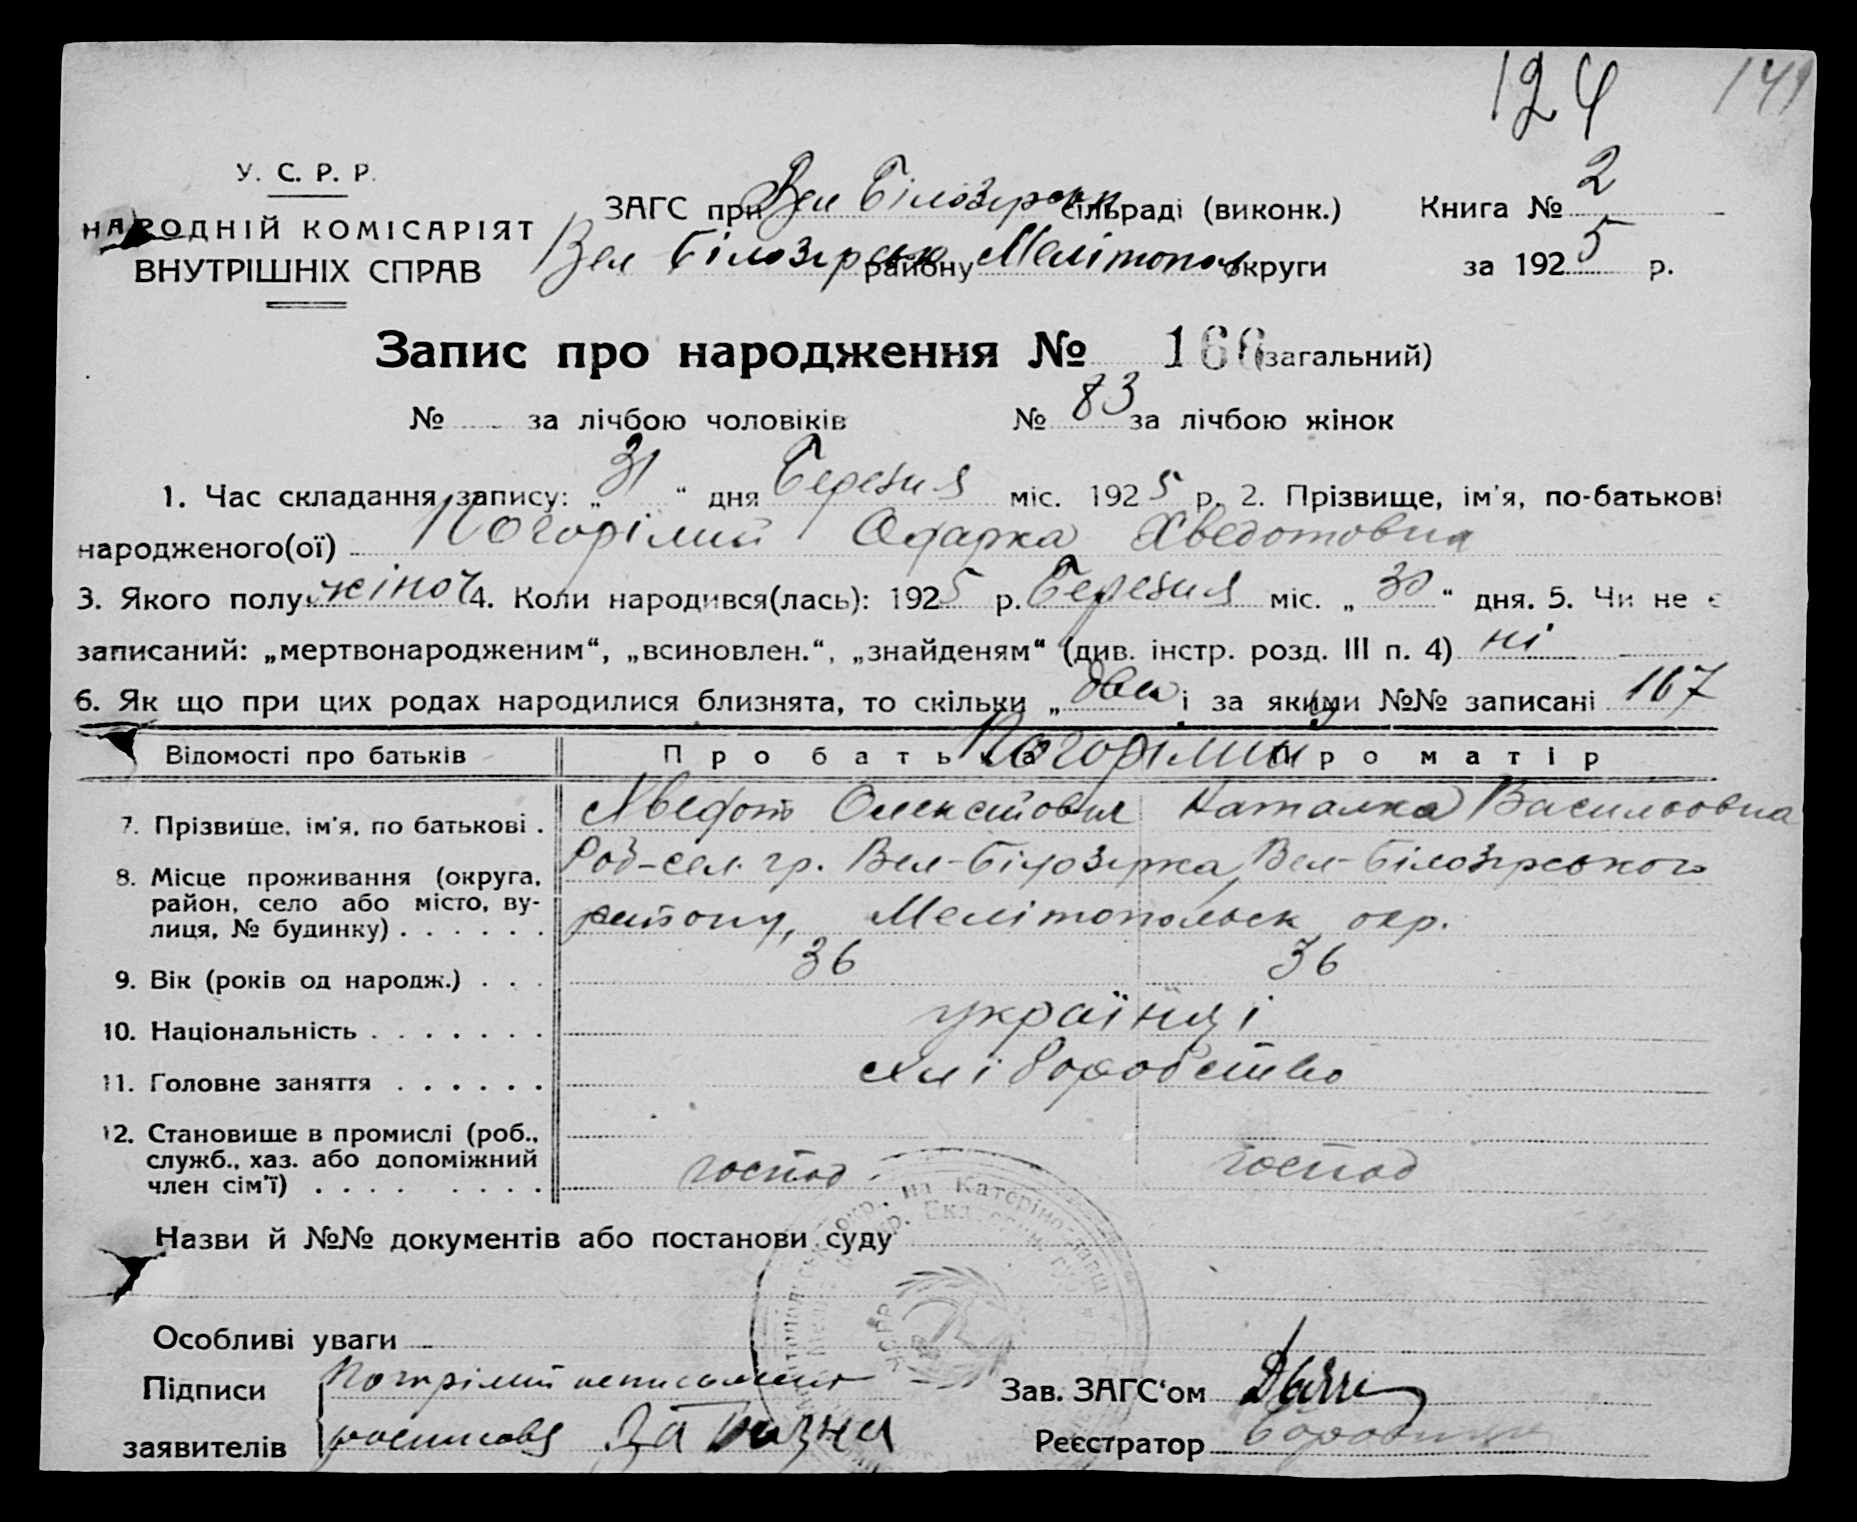 124 149
У. С. Р. Р.
НАРОДНІЙ КОМІСАРІЯТ
ВНУТРІШНІХ СПРАВ
ЗАГС при Вел Білозерськ сільраді (виконк.) Книга № 2
Вел Білозерськ району Мелітополь округи за 1925 р.
Запис про народження № 166 (загальний)
№ за лічбою чоловіків № 83 за лічбою жінок
1. Час складання запису: „31“ дня Березня міс. 1925 р. 2. Прізвище, ім'я, по-батькові
народженого(ої) Погорілий Одарка Хведотовна
3. Якого полу жіноч 4. Коли народився(лась): 1925 р. Березня міс. „30“ дня. 5. Чи не є
записаний: „мертвонародженим“, „всиновлен.“, „знайденям“ (див. інстр. розд. III п. 4) ні
6. Як що при цих родах народилися близнята, то скільки „два і за якими №№ записані 167
Відомості про батьків Про батька Про матір
Погорілий
7. Прізвище, ім'я, по батькові . Хведот Олексійович Наталка Васильовна
8. Місце проживання (округа, район, село або місто, вулиця, № будинку) . . . . . . Род-сел. гр. Вел-Білозерка, Вел-Білозерського
району, Мелітопольск окр.
9. Вік (років од народж.) . . . 36 36
10. Національність . . . . . . . українці
11. Головне заняття . . . . . . хліборобство
12. Становище в промислі (роб., служб., хаз. або допоміжний член сім'ї) . . . . . . . . господ. господ
Назви й №№ документів або постанови суду
Особливі уваги
Підписи заявителів Погорілий неписьмен
росписавсь За
Зав. ЗАГС'ом
Реєстратор
УСРР